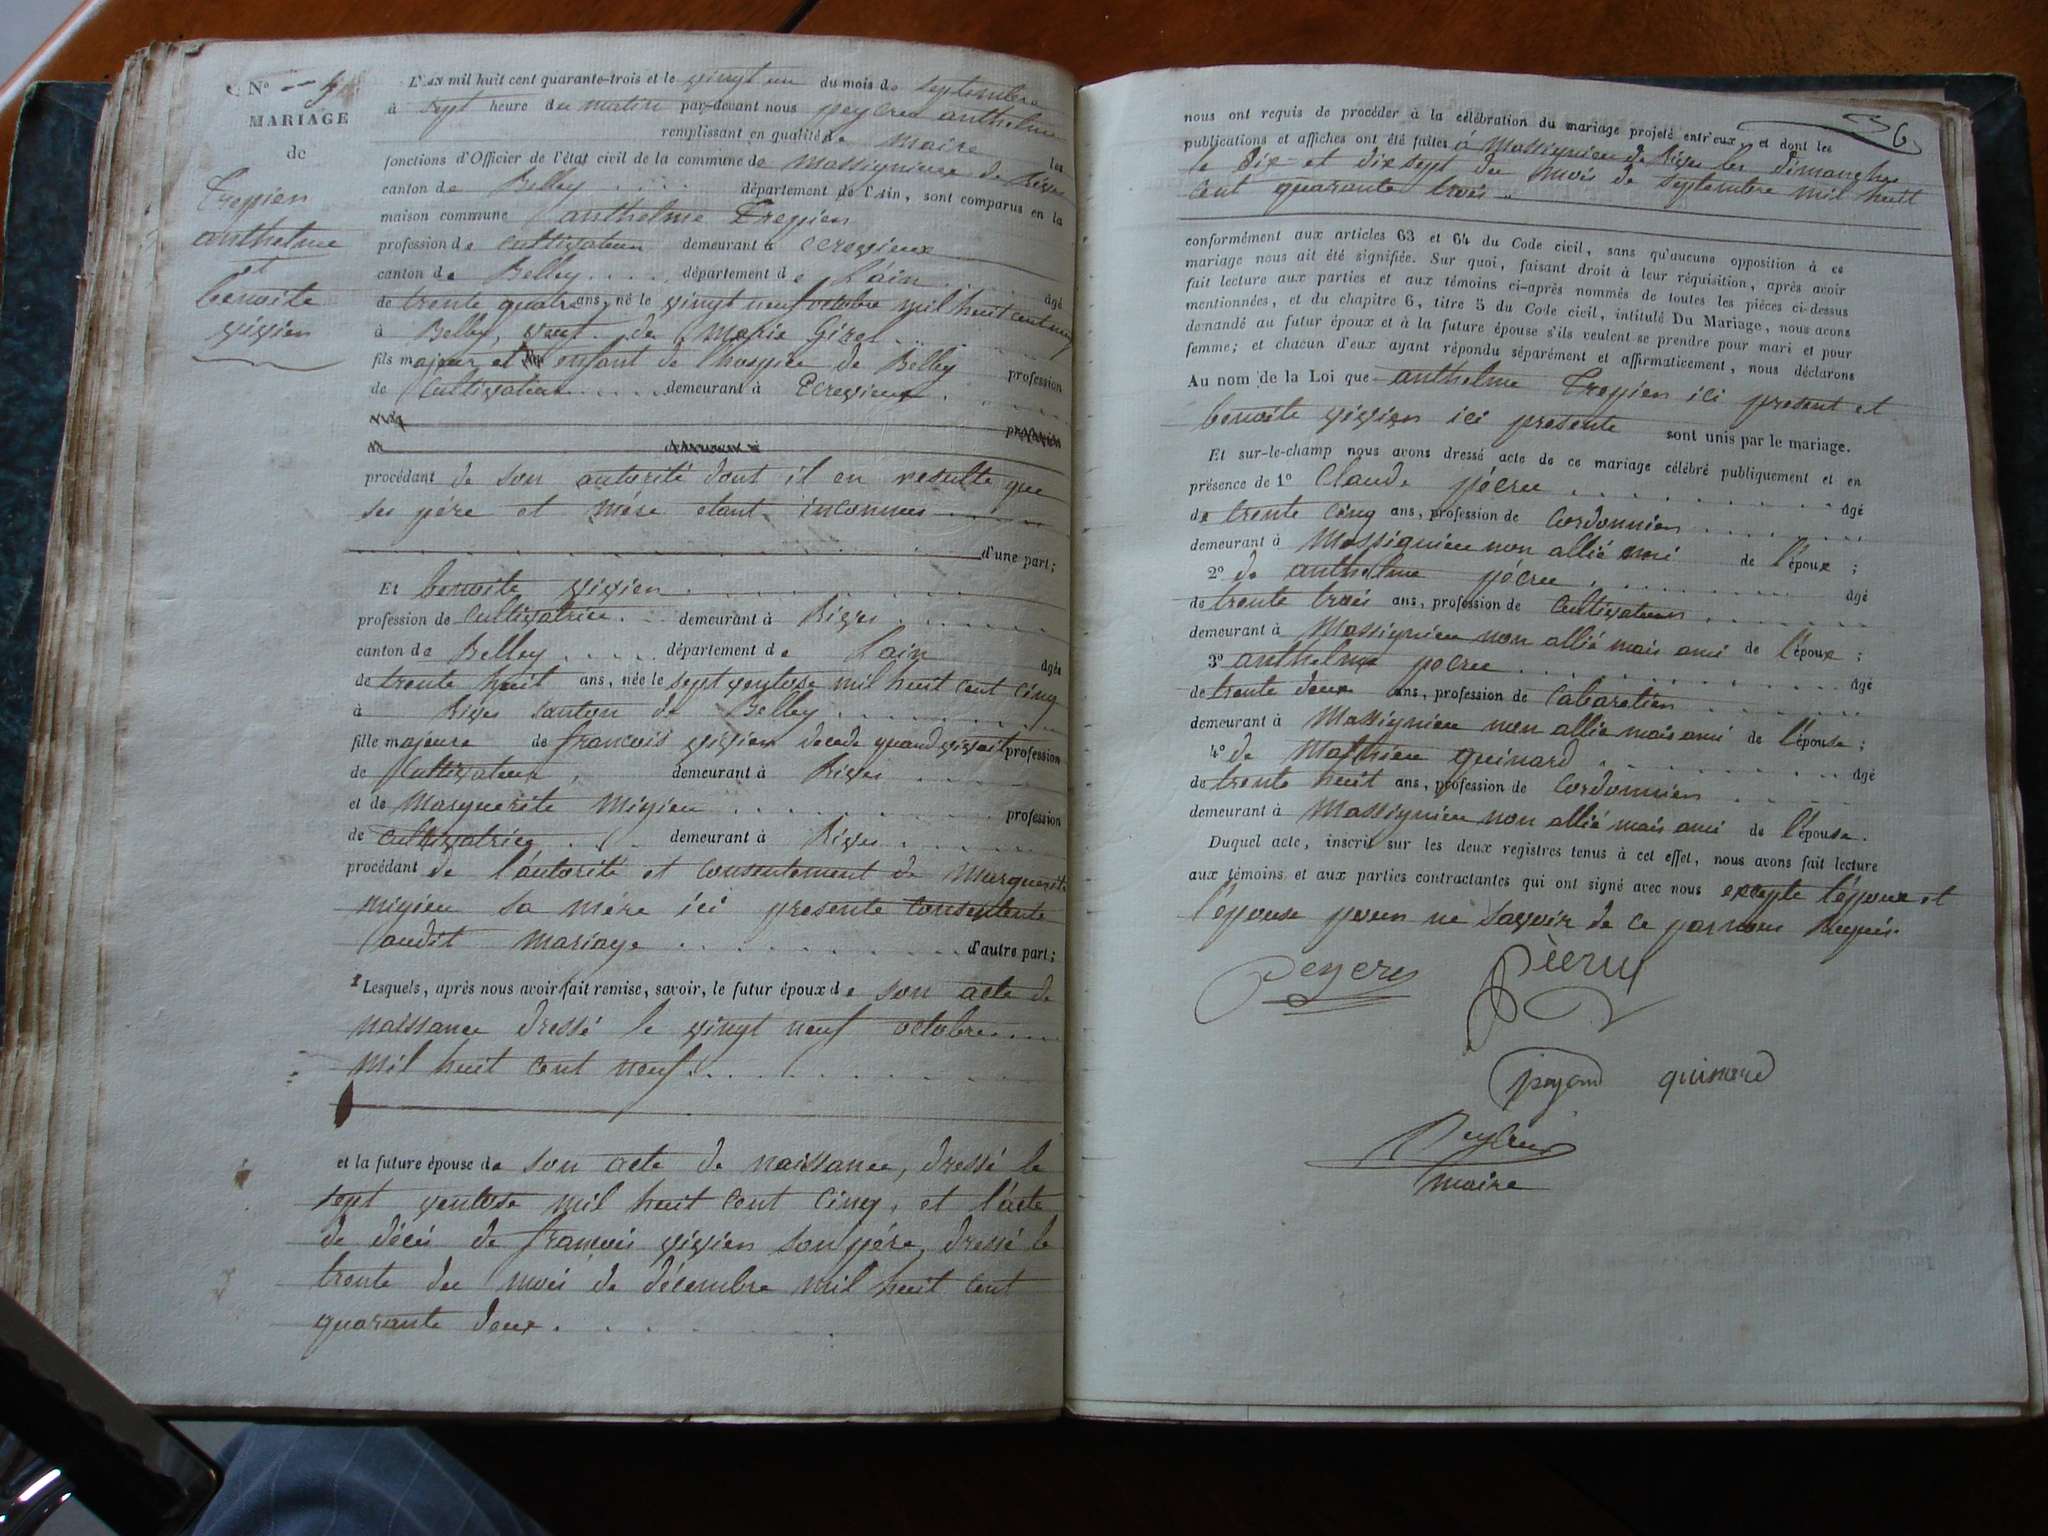 N°
MARIAGE
de
Trepien
anthelme
et
benoite
vivien
L'an mil huit cent quarante-trois et le vingt un du mois de septembre
à sept heure du matin par-devant nous peycru anthelme
remplissant en qualité de maire les
fonctions d'Officier de l'état civil de la commune de massignieu de Rives
canton de Belley département de l'Ain, sont comparus en la
maison commune anthelme Trepien
profession de cultivateur demeurant à ecrevieux
canton de Belley département de L'ain âgé
de trente quatre ans, né le vingt neuf octobre mil huit cent neuf
à Belley, veuf de Marie
fils majeur et enfant de l'hospice de Belley profession
de Cultivateur demeurant à Ecrevieux
procédant de son autorité dont il en resulte que
ses pére et mére etant inconnus
d'une part;
Et benoite vivien
profession de cultivatrice demeurant à Rives
canton de Belley département de Lain âgée
de trente huit ans, née le sept ventose mil huit cent cinq
à Rives canton de Belley
fille majeure de francois vivien decede quand vivait profession
de Cultivateur, demeurant à Rives
et de Marguerite Migieu profession
de cultivatrice demeurant à Rives
procédant de l'autorité et consentement de Marguerite
migieu sa mére ici presente consentente
audit mariage d'autre part;
Lesquels, après nous avoir fait remise, savoir, le futur époux de son acte de
naissance dressé le vingt neuf octobre
mil huit cent neuf
et la future épouse de son acte de naissance, dressé le
sept ventose mil huit cent cinq, et l'acte
de décés de francois vivien son pére, dressé le
trente du mois de décembre mil huit cent
quarante deux.
36
nous ont requis de procéder à la célébration du mariage projeté entr'eux, et dont les
publications et affiches ont été faites à Massignieu de Rives les dimanches
le dix et dix sept du mois de septembre mil huit
cent quarante trois
conformément aux articles 63 et 64 du Code civil, sans qu'aucune opposition à ce
mariage nous ait été signifiée. Sur quoi, faisant droit à leur réquisition, après avoir
fait lecture aux parties et aux témoins ci-après nommés de toutes les pièces ci-dessus
mentionnées, et du chapitre 6, titre 5 du Code civil, intitulé Du Mariage, nous avons
demandé au futur époux et à la future épouse s'ils veulent se prendre pour mari et pour
femme; et chacun d'eux ayant répondu séparément et affirmativement, nous déclarons
Au nom de la Loi que anthelme Trepien ici present et
benoite vivien ici presente sont unis par le mariage.
Et sur-le-champ nous avons dressé acte de ce mariage célébré publiquement et en
présence de 1° Claude pécru âgé
de trente cinq ans, profession de Cordonnier
demeurant à Massignieu non allié ami de l'époux;
2° de anthelme pécru âgé
de trente trois ans, profession de Cultivateur
demeurant à Massignieu non allié mais ami de l'époux;
3° anthelme pecru âgé
de trente deux ans, profession de Cabaretier
demeurant à Massignieu non allié mais ami de l'épouse;
4° de Mathieu guinard âgé
de trente huit ans, profession de Cordonnier
demeurant à Massignieu non allié mais ami de l'épouse.
Duquel acte, inscrit sur les deux registres tenus à cet effet, nous avons fait lecture
aux témoins et aux parties contractantes qui ont signé avec nous excepte l'époux et
l'epouse pour ne savoir de ce par nous requis.
Peycru
Pécru
guinard
Peycru
maire